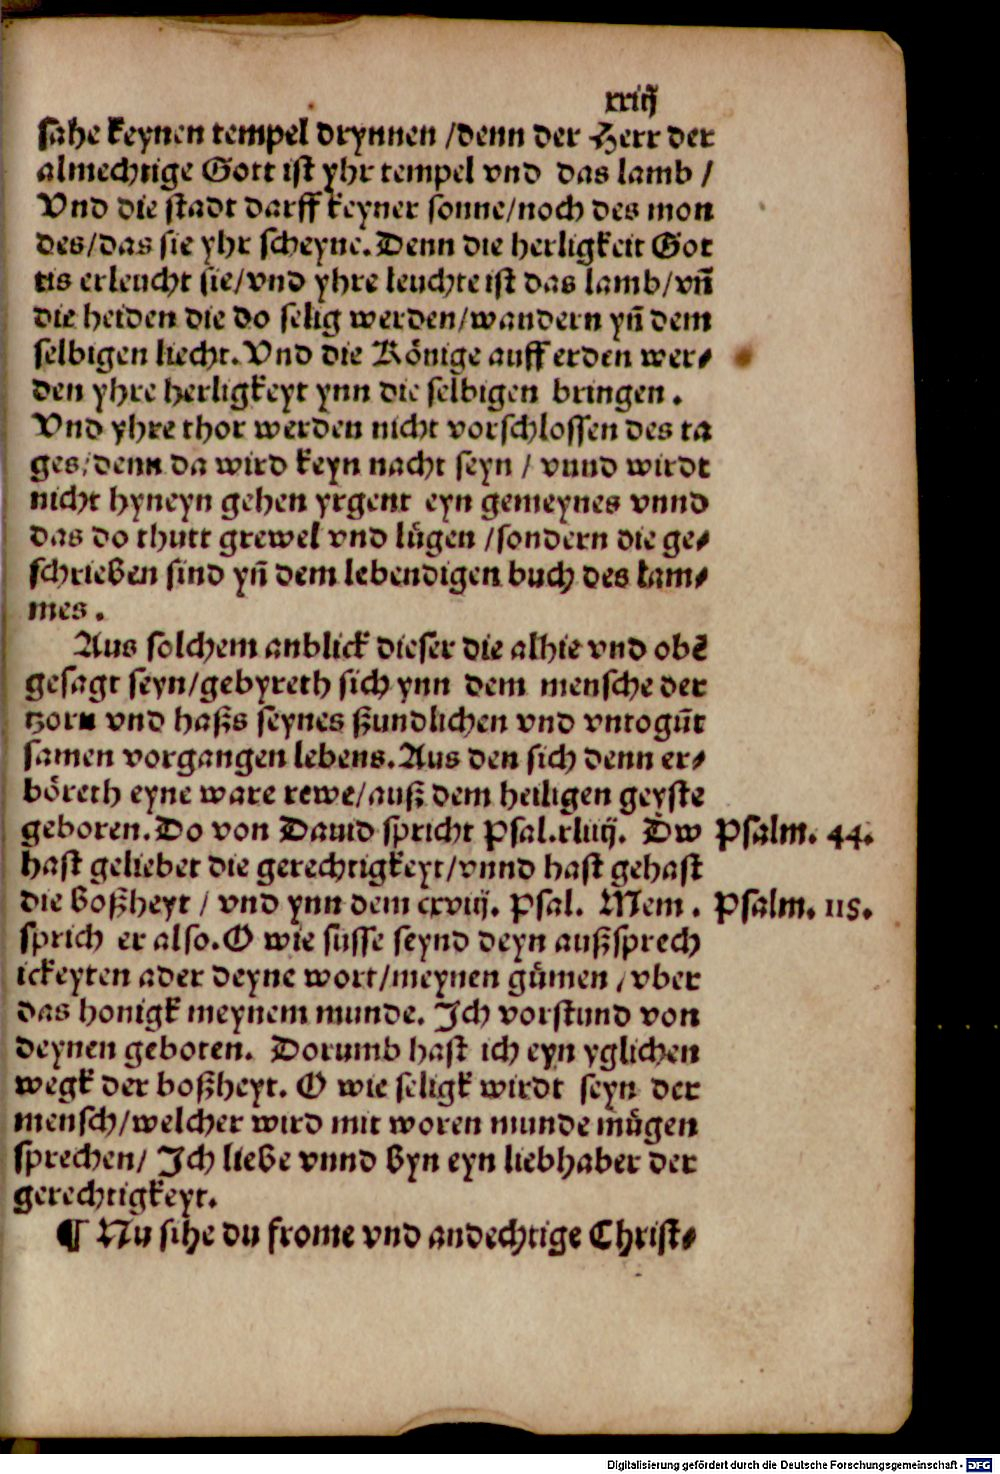 xxiij
sahe keynen tempel drynnen /denn der Herr der
almechtige Gott ist yhr tempel vnd das lamb /
Vnd die stadt darff keyner sonne/noch des mon
des/das sie yhr scheyne. Denn die herligkeit Got
tis erleucht sie/vnd yhre leuchte ist das lamb/vn̄
die heiden die do selig werden/wandern yn̄ dem
selbigen liecht. Vnd die Könige auff erden wer⸗
den yhre herligkeyt ynn die selbigen bringen .
Vnd yhre thor werden nicht vorschlossen des ta
ges/denn da wird keyn nacht seyn / vnnd wirdt
nicht hyneyn gehen yrgent eyn gemeynes vnnd
das do thutt grewel vnd lügen /sondern die ge⸗
schrieben sind yn̄ dem lebendigen buch des lam⸗
mes .
Aus solchem anblick dieser die alhie vnd obē
gesagt seyn/gebyreth sich ynn dem mensche der
tzorn vnd haßs seynes ßundlichen vnd vntogūt
samen vorgangen lebens. Aus den sich denn er⸗
böreth eyne ware rewe/auß dem heiligen geyste
geboren. Do von Dauid spricht Psal.xliiij. Dw
Psalm. 44.
hast geliebet die gerechtigkeyt/vnnd hast gehast
die boßheyt / vnd ynn dem cxviij. Psal. Mem .
Psalm. 115.
sprich er also. O wie susse seynd deyn außsprech
ickeyten ader deyne wort/meynen gůmen / vber
das honigk meynem munde. Ich vorstund von
deynen geboten. Dorumb hast ich eyn yglichen
wegk der boßheyt. O wie seligk wirdt seyn der
mensch/welcher wird mit woren munde můgen
sprechen/ Ich liebe vnnd byn eyn liebhaber der
gerechtigkeyt.
¶ Nu sihe du frome vnd andechtige Christ⸗
Digitalisierung gefördert durch die Deutsche Forschungsgemeinschaft - DFG